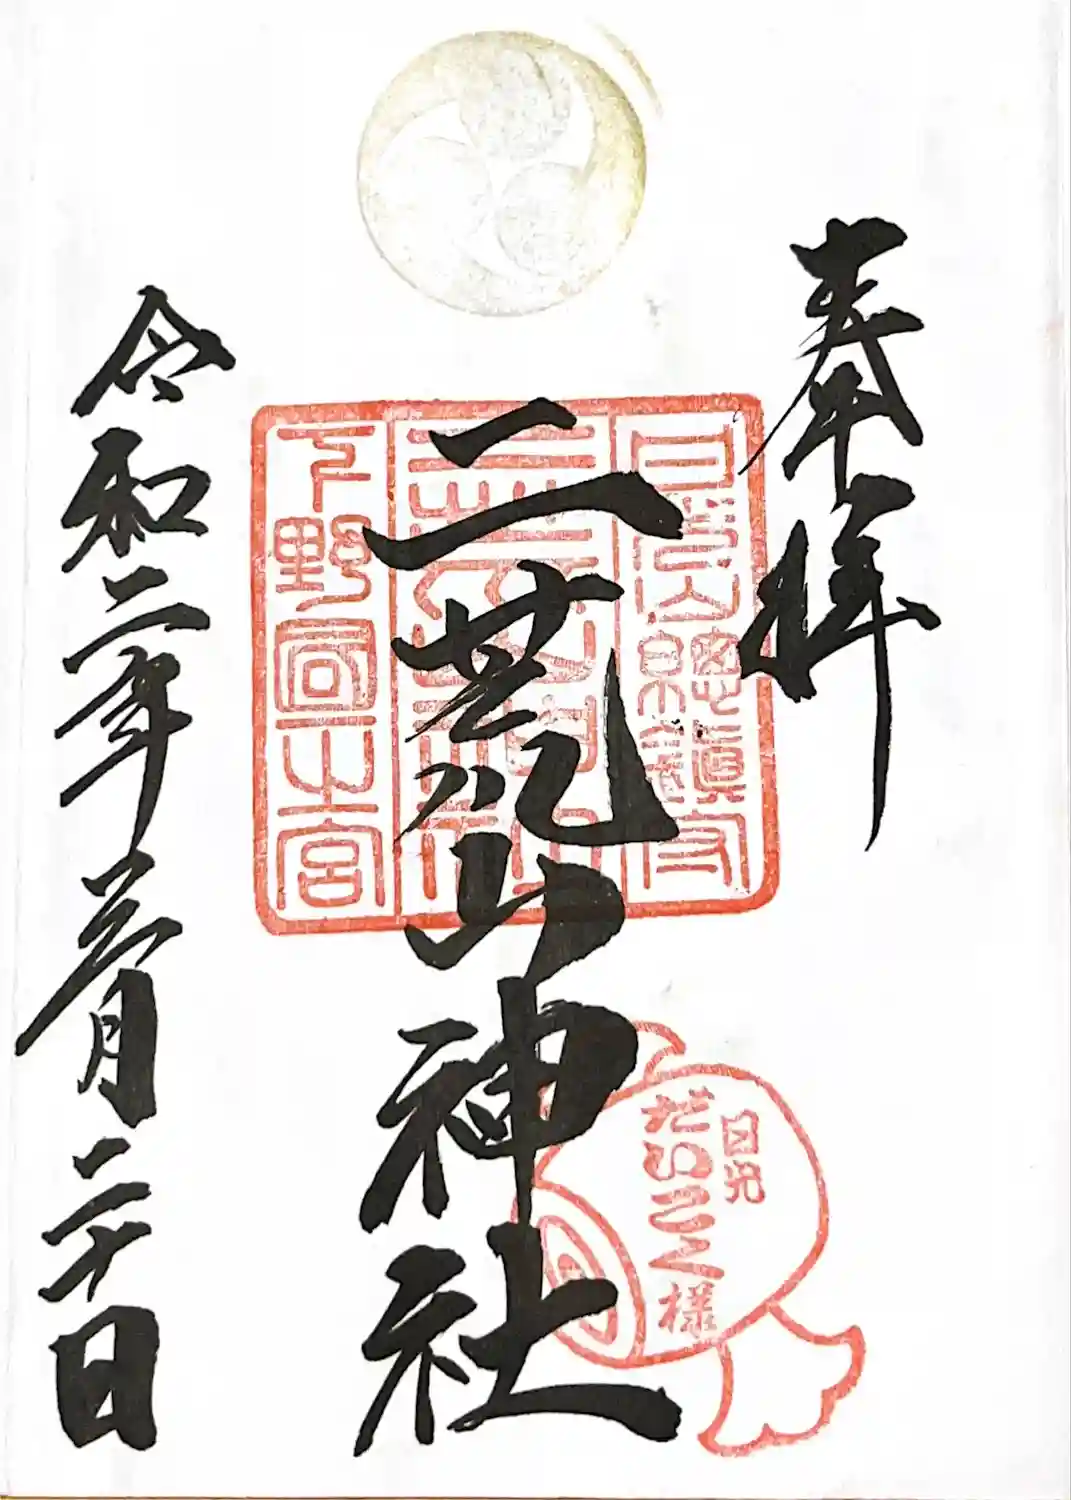 奉拝
日光山總鎮守
二荒山神社
二荒山神社
下野國一之宮
日光
だいこく様
令和二年 月二十日